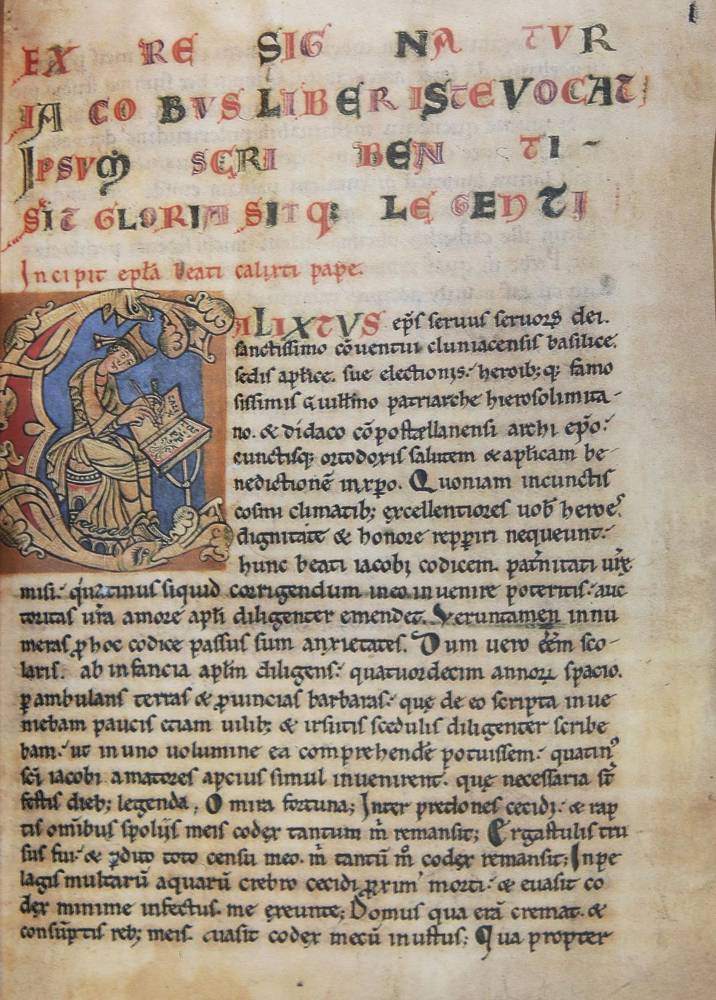 EX RE SIGNATVR
IACOBVS LIBER ISTE VOCAT
IPSVM SCRIBENTI-
SIT GLORIA SITQ; LEGENTI
Incipit epła beati calixti pape.
CALIXTVS ep̄s seruus seruoꝝ dei.
sanctissimo cōuentui cluniacensis basilice.
sedis aplice. sue electionis. heroib; q; famo
sissimis Guillmo patriarche hierosolimita-
no. & didaco cōpostellanensi archi ep̄o.
cunctisq; ortodoxis salutem & aplicam be-
nedictionē in xpo. Quoniam incunctis
cosmi climatib; excellentiores uob heroeˀ
dignitate & honore repꝑiri nequeunt.
hunc beati iacobi codicem. pat̄nitati ur̄e
misi. q̄uatinus siquid corrigendum ineo inuenire poteritis. auc
toritas ur̄a amore apli diligenter emendet. Veruntamen innu
meras ꝓ hoc codice passus sum anxietates. Dum uero eēm sco-
laris. ab infancia aplm diligens. quatuordecim annoꝝ spacio.
ꝑambulans terras & ꝓuincias barbaras. que de eo scripta inue
niebam paucis etiam uilib; & irsutis scedulis diligenter scribe
bam. ut in uno uolumine ea comprehendē potuissem. quatinˀ
sc̄i iacobi amatores apcius simul inuenirent. que necessaria st̄
festis dieb; legenda. O mira fortuna; Inter predones cecidi. & rap
tis omībus spolijs meis codex tantum m̄ remansit; Ergastulis tru
sus fui. & ꝑdito toto censu meo. m̄ tantū m̊ codex remansit; In pe
lagis multarū aquarū crebro cecidi ꝓximˀ morti. & euasit co
dex minime infectus. me exeunte; Domus qua erā cremat. &
consūptis reb; meis. euasit codex mecū inustus; Qua propter